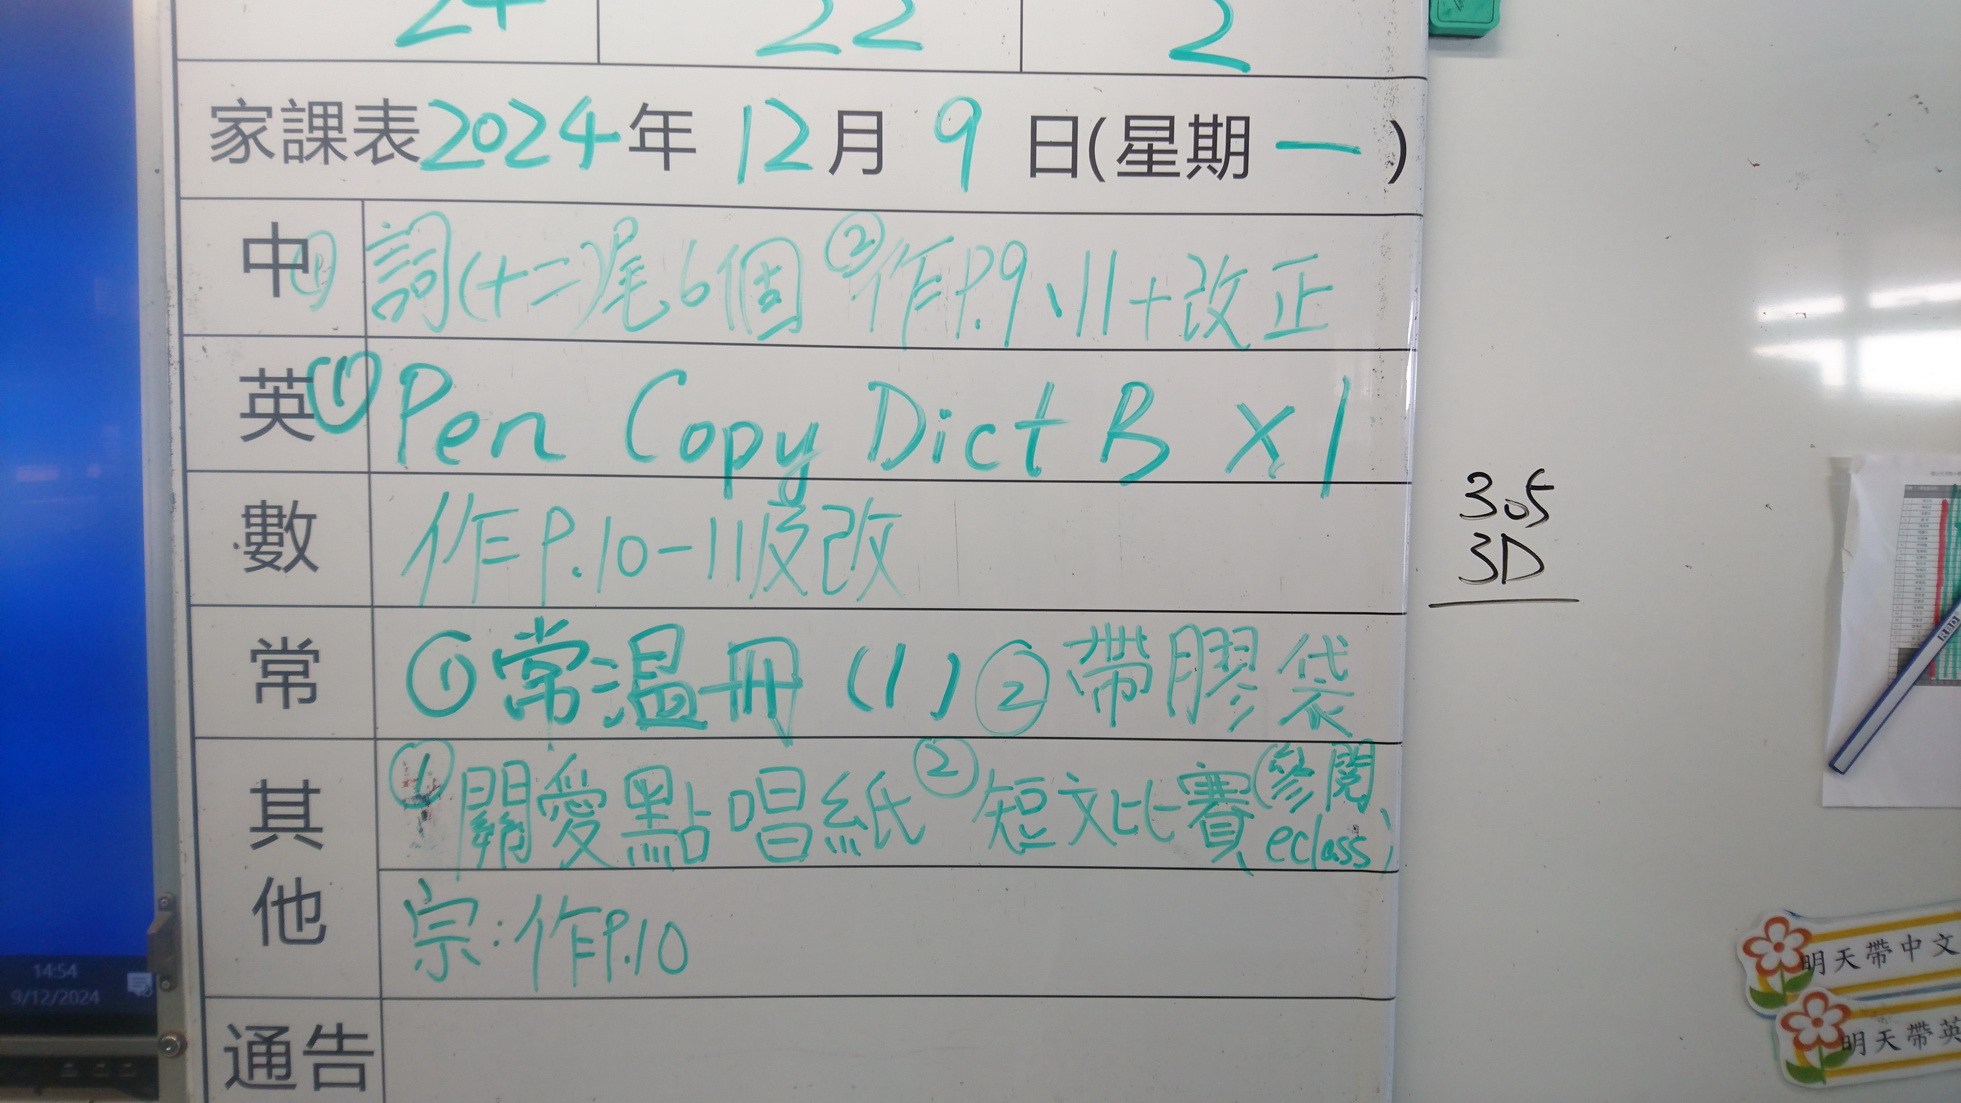 24 22 2
家課表2024年 12月 9 日(星期一)
中① 詞(十二)尾6個 ②作P.9、11+改正
英① Pen Copy Dict B x1
數 作P.10-11及改
常 ①常溫冊(1)②帶膠袋
其他 ①關愛點唱紙 ②短文比賽(參閱eclass)
宗:作P.10
通告
305
3D
明天帶中文
明天帶英
14:54
9/12/2024